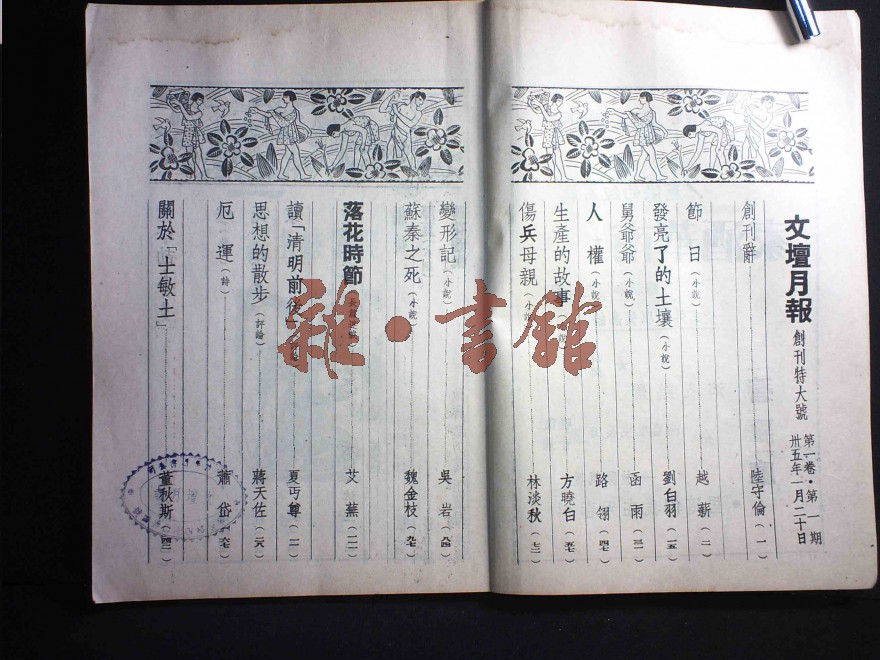 文壇月報 創刊特大號 第一卷·第一期
卅五年一月二十日
創刊辭 陸守倫(一)
節日(小說) 越薪(二)
發亮了的土壤(小說) 劉白羽(一五)
舅爺爺(小說) 函雨(三一)
人權(小說) 路翎(四七)
生產的故事 方曉白(五七)
傷兵母親(小說) 林淡秋(七二)
變形記(小說) 吳岩(八四)
蘇秦之死(小說) 魏金枝(九七)
落花時節 艾蕪(一一一)
讀「清明前後」 夏丏尊(一一)
思想的散步(評論) 蔣天佐(二六)
厄運(詩) 蕭岱(六七)
關於「士敏土」 董秋斯(四三)
雜·書館